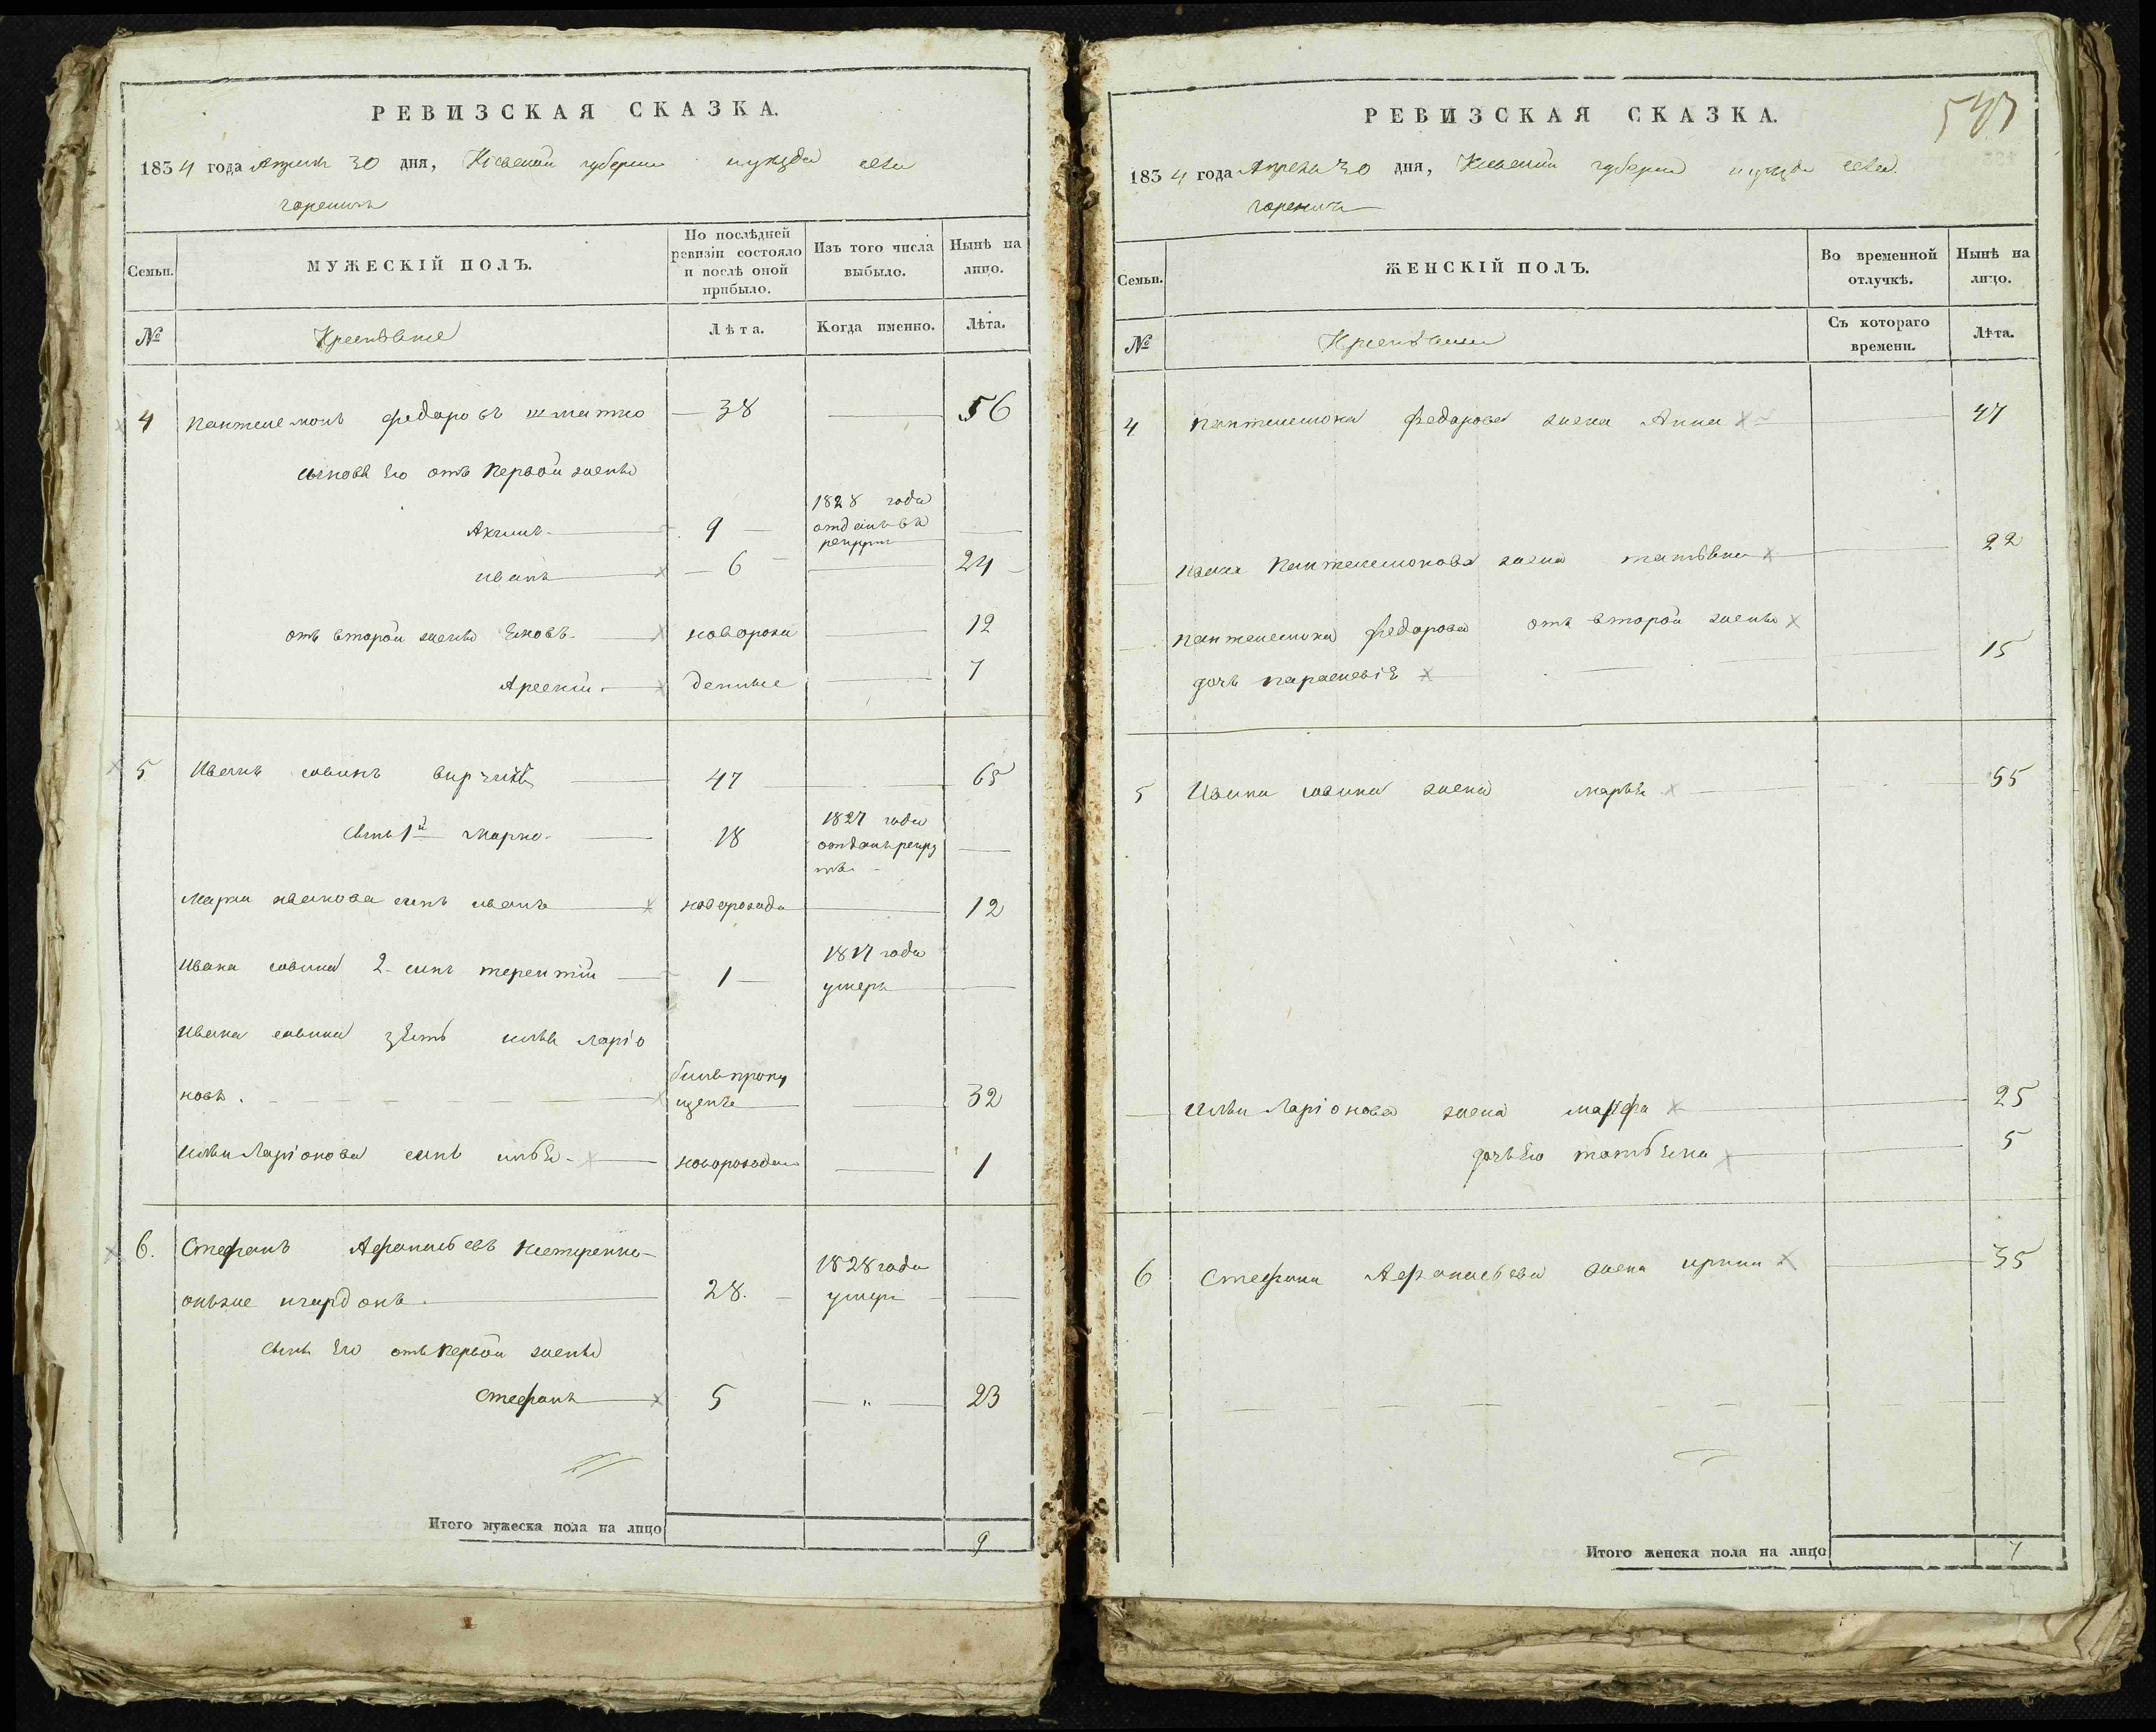 РЕВИЗСКАЯ СКАЗКА.
1834 года Апреля 30 дня, Кіевской губерніи и уезда села
горенич
Семьи.
МУЖЕСКІЙ ПОЛЪ.
По послѣдней ревизіи состояло и послѣ оной прибыло.
Изъ того числа выбыло.
Нынѣ на лицо.
№
Крестьяне
Лѣта.
Когда именно.
Лѣта.
4 Пантелемонъ федаровъ шматко 38 56
сыновя Его отъ Первой жены
Акимъ 9 1828 года отданъ въ
иванъ 6 24
отъ второй жены 12
Арсеній 7
новорожденные
5 Иванъ савинъ 47 65
Сынъ 1й Марко 18 1827 года отданъ рекруты
Марка иванова синъ иванъ новорожде 12
Ивана савина 2 синъ терентій 1 1817 года умеръ
Ивана савина зѣть илья ларіо
новъ билъ пропущенъ 32
Ильи Ларіонова синъ новорожден 1
6. Стефанъ Афанасьевъ Нестеренко
онъже 28. 1828 года умеръ
Сынъ Его отъ Первой жены
Стефанъ 5 " 23
Итого мужеска пола на лицо 9
РЕВИЗСКАЯ СКАЗКА.
547
1834 года Апреля 30 дня, Кіевской губерніи и уезда села
горенич
Семьи.
ЖЕНСКІЙ ПОЛЪ.
Во временной отлучкѣ.
Нынѣ на лицо.
№
Крестьяне
Съ котораго времени.
Лѣта.
4 Пантелемона Федарова жена Анна 47
Ивана Пантелемонова жена татьяна 22
Пантелемона Федарова отъ второй жены
дочь параскевія 15
5 Ивана савина жена марья 55
Ильи Ларіонова жена марфа 25
дочь Его татьяна 5
6 Стефана Афанасьева жена ирина 35
Итого женска пола на лицо 7